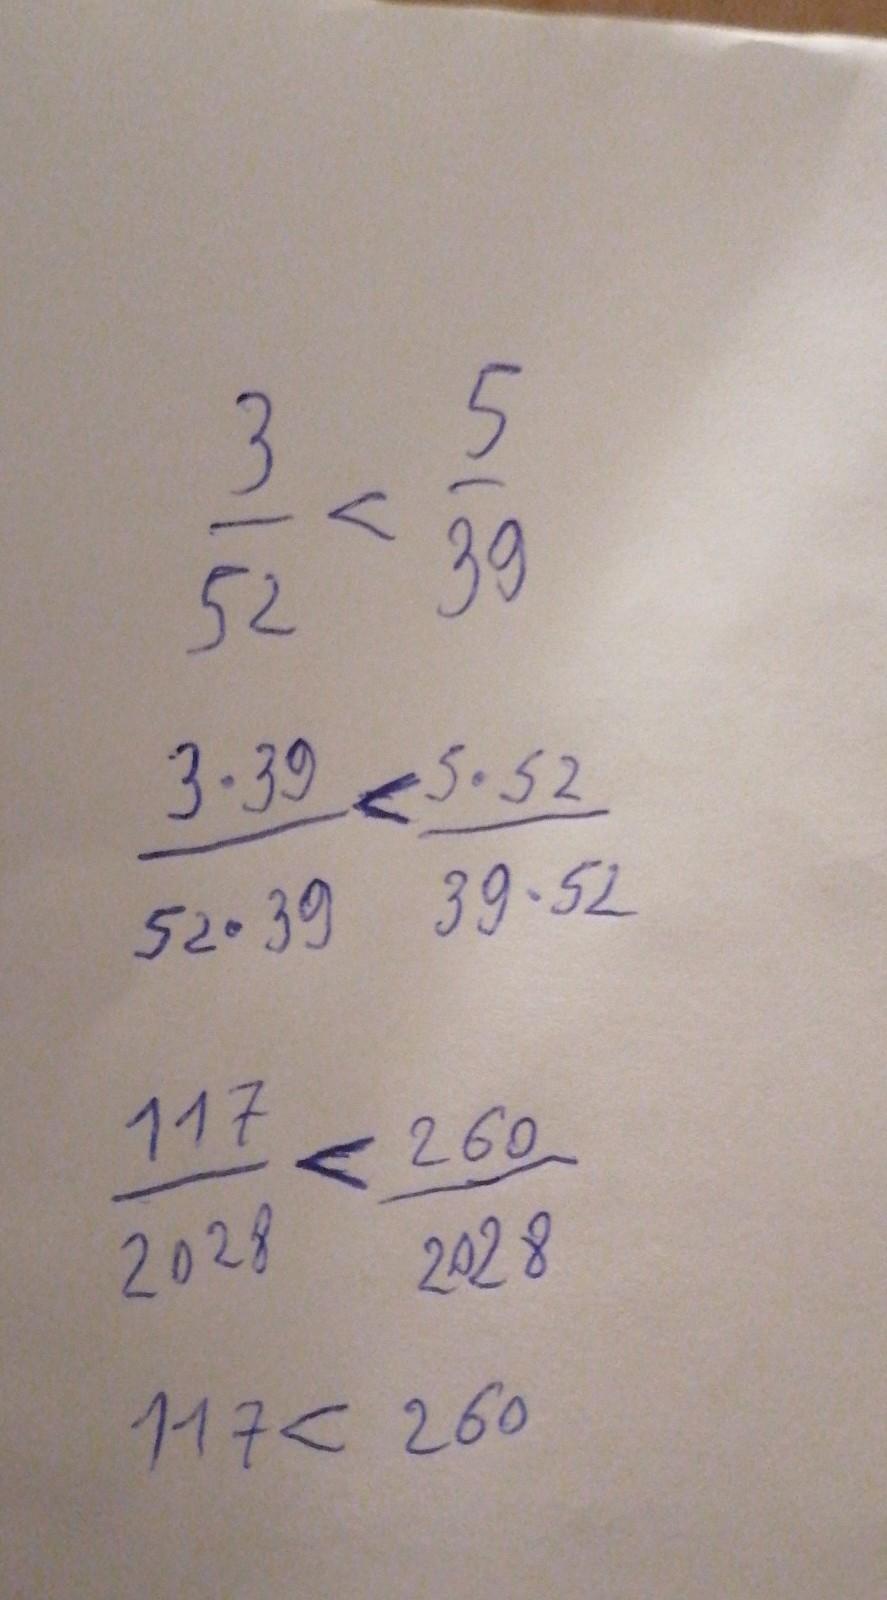 3/52 < 5/39
3·39/52·39 < 5·52/39·52
117/2028 < 260/2028
117 < 260